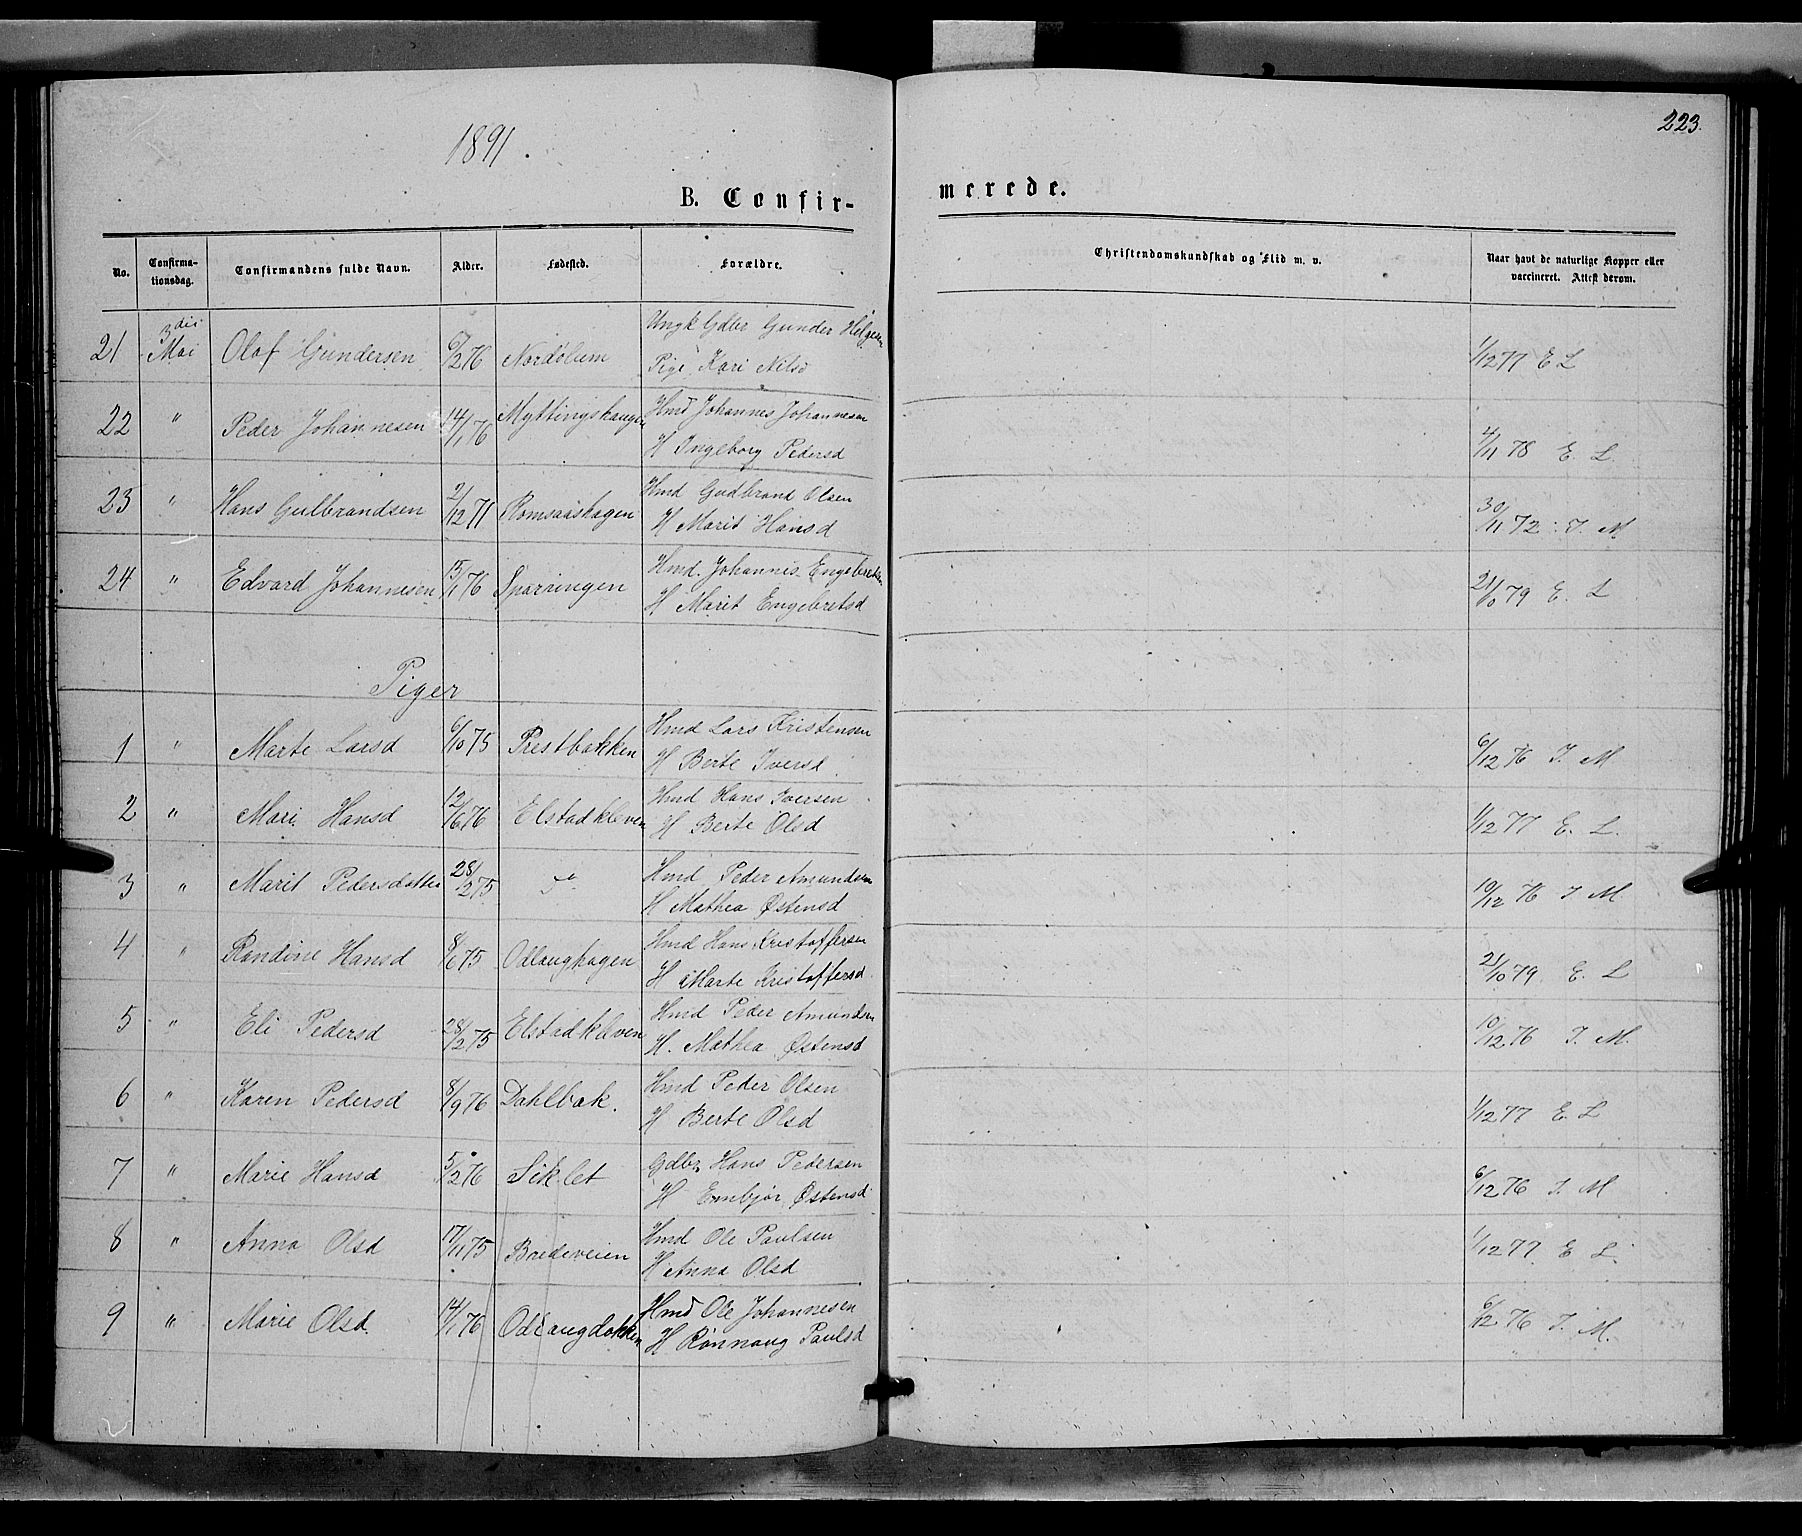 1891.
223.
B. Confir-
merede.
No.
Confirma-
tionsdag.
Confirmandens fulde Navn.
Alder.
Fødested.
Forældre.
Christendomskundskab og Flid m. v.
Naar havt de naturlige Kopper eller
vaccineret. Attest derom.
21 3die Mai Olaf Gundersen 6/2 76 Nordolum Ungk Gdbr Gunder Helgesen
Pige Kari Nilsd 1/12 77 E L
22 " Peder Johannesen 14/1 76 Myttingshaugen Hmd Johannes Johannesen
H Ingeborg Pedersd 4/11 78 E. L.
23 " Hans Gulbrandsen 2/12 71 Romsaashagen Hmd Gudbrand Olsen
H Marit Hansd 30/11 72 I. M
24 " Edvard Johannesen 15/1 76 Sparringen Hmd. Johannes Engebretsen
H Marit Engebretsd 21/10 79 E. L
Piger
1 " Marte Larsd 6/10 75 Prestbakken Hmd Lars Kristensen
H Berte Iversd 6/12 76 I. M
2 " Mari Hansd 12/6 76 Elstadkleven Hmd Hans Iversen
H Berte Olsd 1/12 77 E. L.
3 " Marit Pedersdatter 28/2 75 do Hmd Peder Amundsen
H Mathea Østensd 10/12 76 I M
4 " Randine Hansd 8/6 75 Odlaughagen Hmd Hans Kristoffersen
H Marte Kristoffersd 21/10 79 E. L
5 " Eli Pedersd 28/2 75 Elstadkleven Hmd Peder Amundsen
H. Mathea Østensd 10/12 76 I. M.
6 " Karen Pedersd 8/9 76 Dahlbak. Hmd Peder Olsen
H Berte Olsd 1/12 77 E L
7 " Marie Hansd 5/2 76 Siklet Gdbr. Hans Pedersen
H Embjør Østensd 6/12 76 I. M
8 " Anna Olsd 17/11 75 Bredeveien Hmd Ole Paulsen
H Anna Olsd 1/12 77 E L.
9 " Marie Olsd. 14/1 76 Odlaugdokken Hmd Ole Johannesen
H Rønnaug Paulsd 6/12 76 I. M.